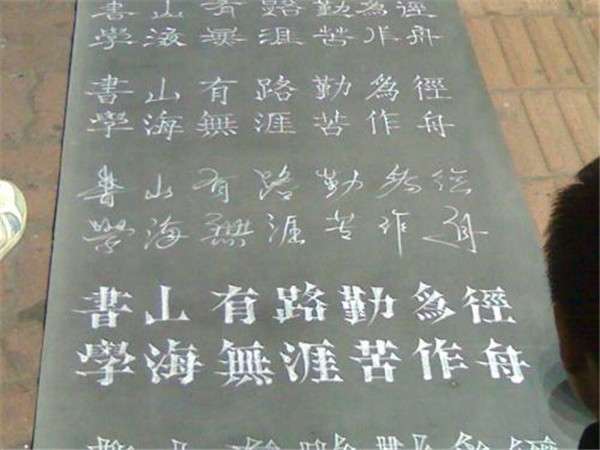 書山有路勤爲徑
學海無涯苦作舟
書山有路勤爲徑
學海無涯苦作舟
書山有路勤爲徑
學海無涯苦作舟
書山有路勤爲徑
學海無涯苦作舟